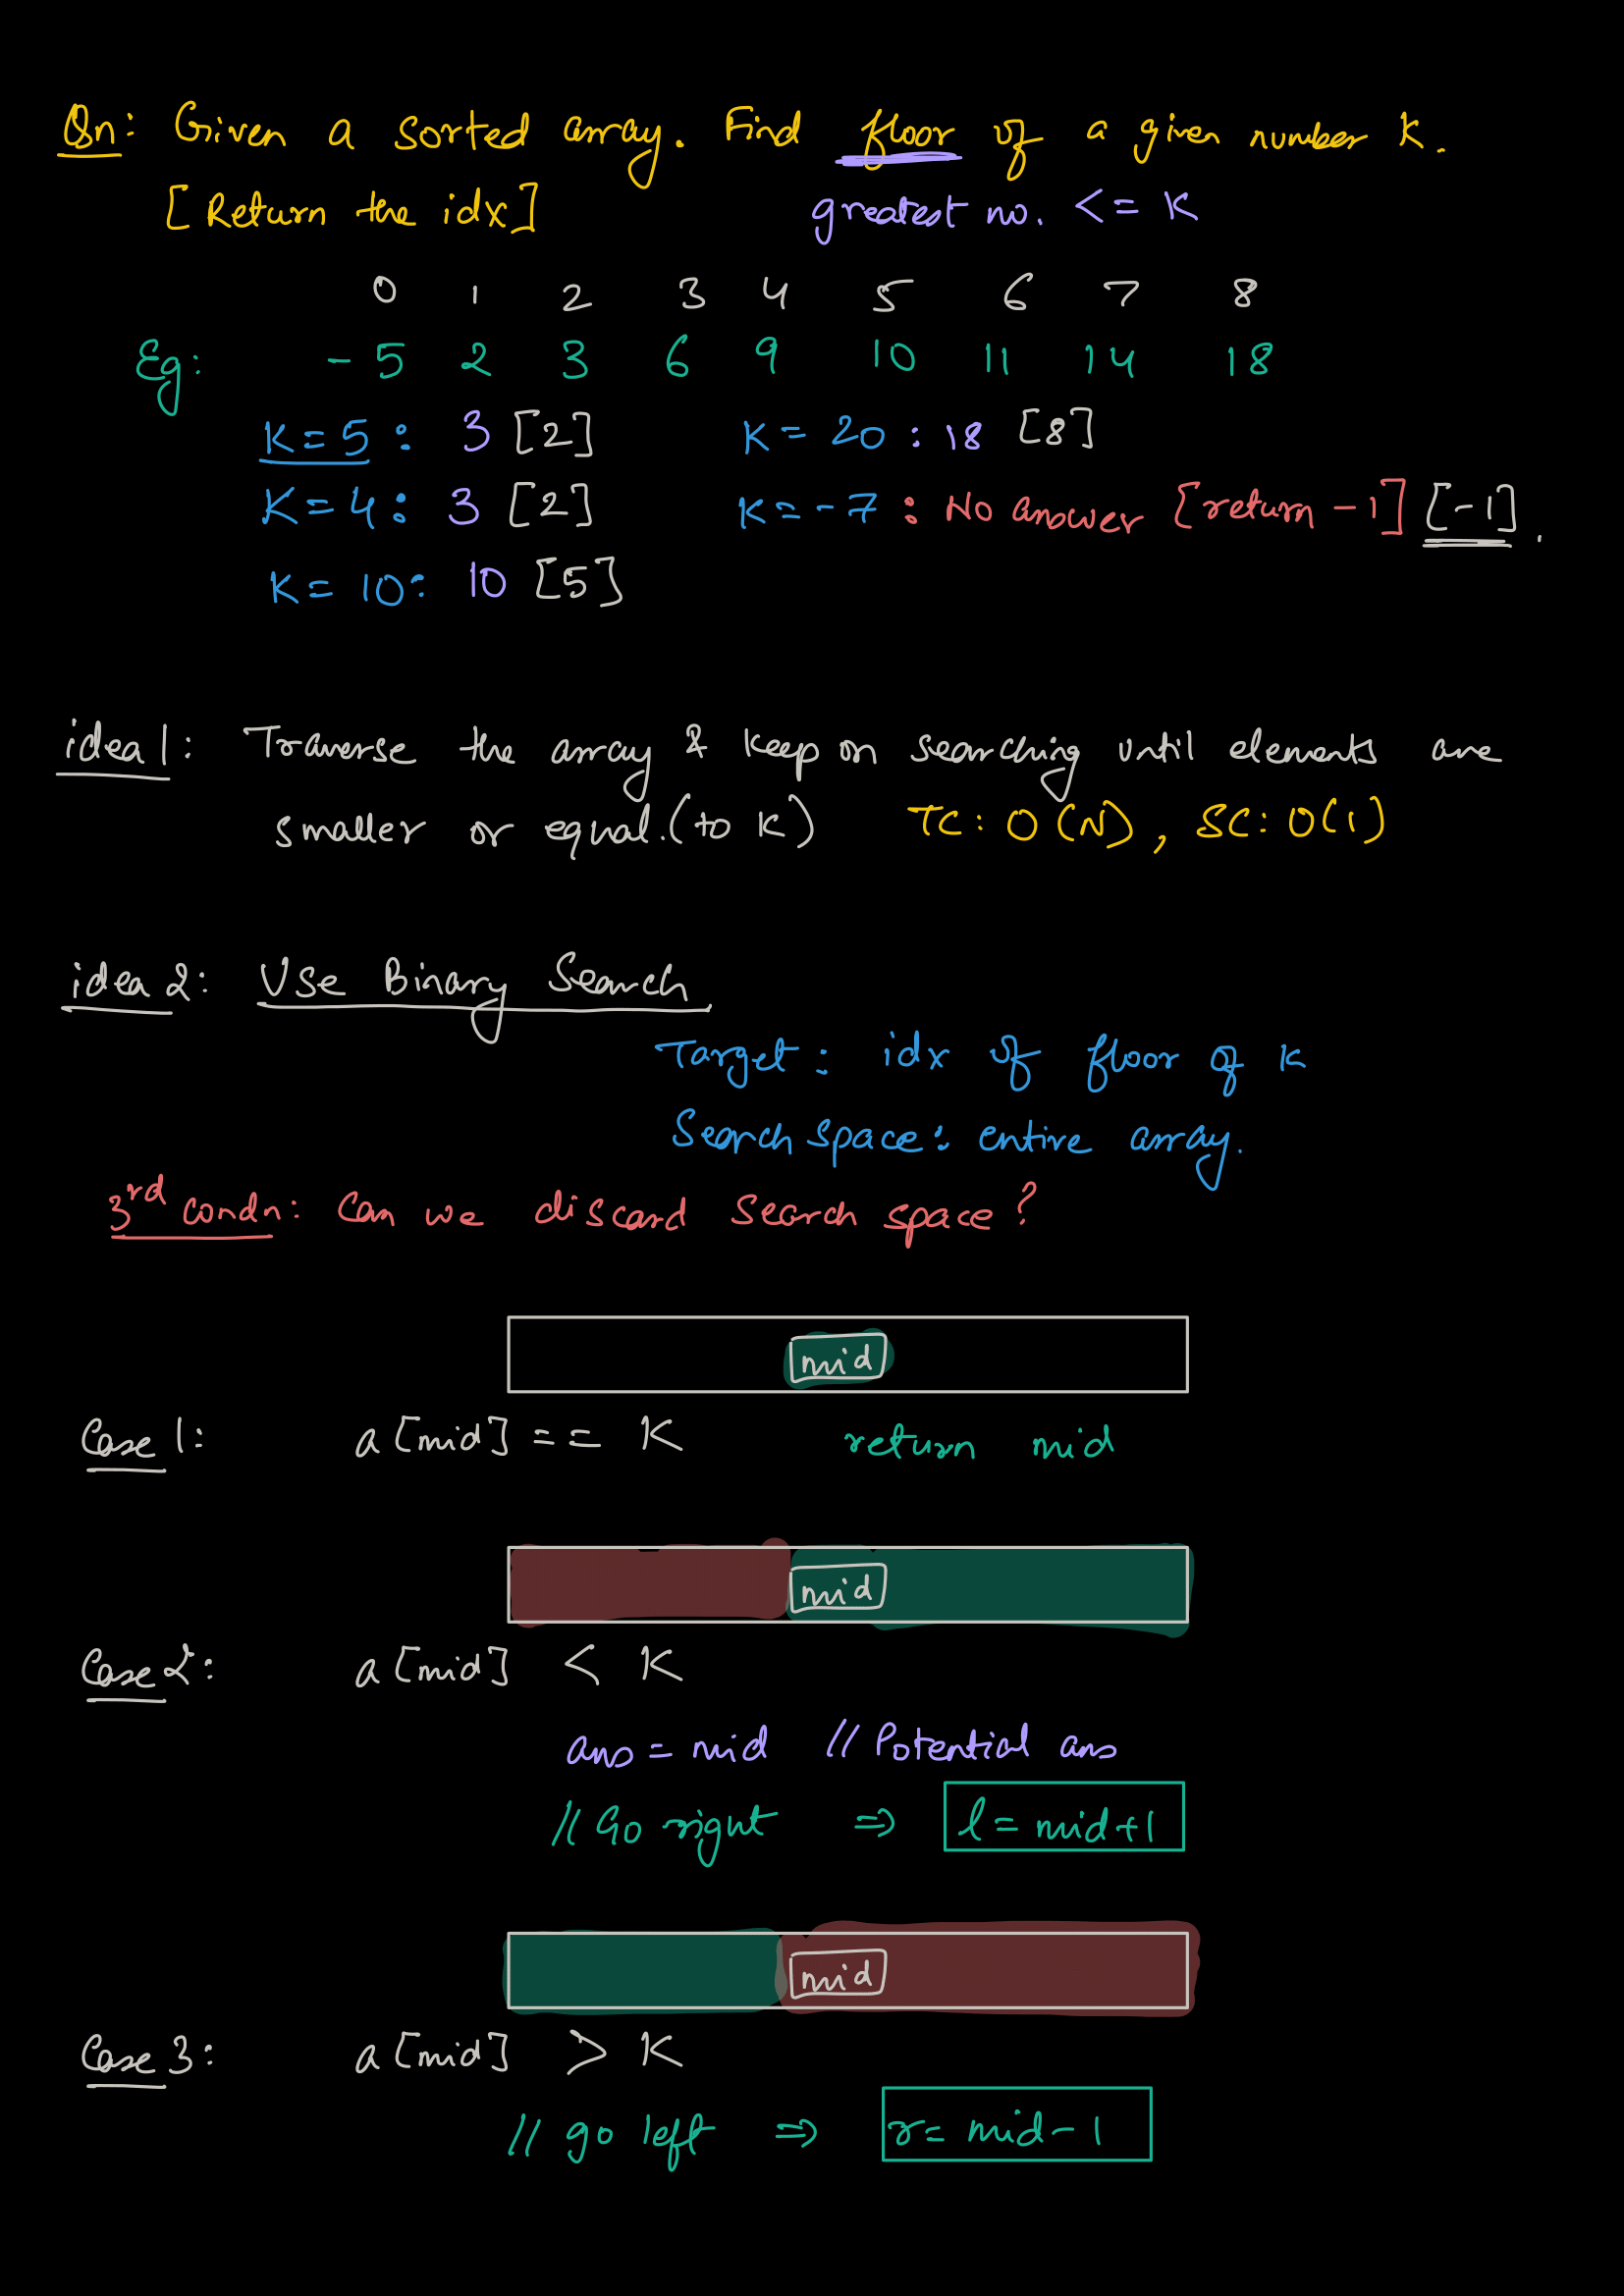 Qn: Given a sorted array. Find floor of a given number K.
[Return the idx] greatest no. <= K
0 1 2 3 4 5 6 7 8
Eg: -5 2 3 6 9 10 11 14 18
K=5: 3 [2] K=20: 18 [8]
K=4: 3 [2] K=-7: No answer [return -1] [-1].
K=10: 10 [5]
idea 1: Traverse the array & keep on searching until elements are
smaller or equal.(to K) TC: O(N), SC: O(1)
idea 2: Use Binary Search
Target: idx of floor of K
Search space: entire array.
3rd condn: Can we discard search space?
mid
Case 1: a[mid] == K return mid
mid
Case 2: a[mid] < K
ans = mid // Potential ans
// Go right ⇒ l = mid+1
mid
Case 3: a[mid] > K
// go left ⇒ r = mid-1